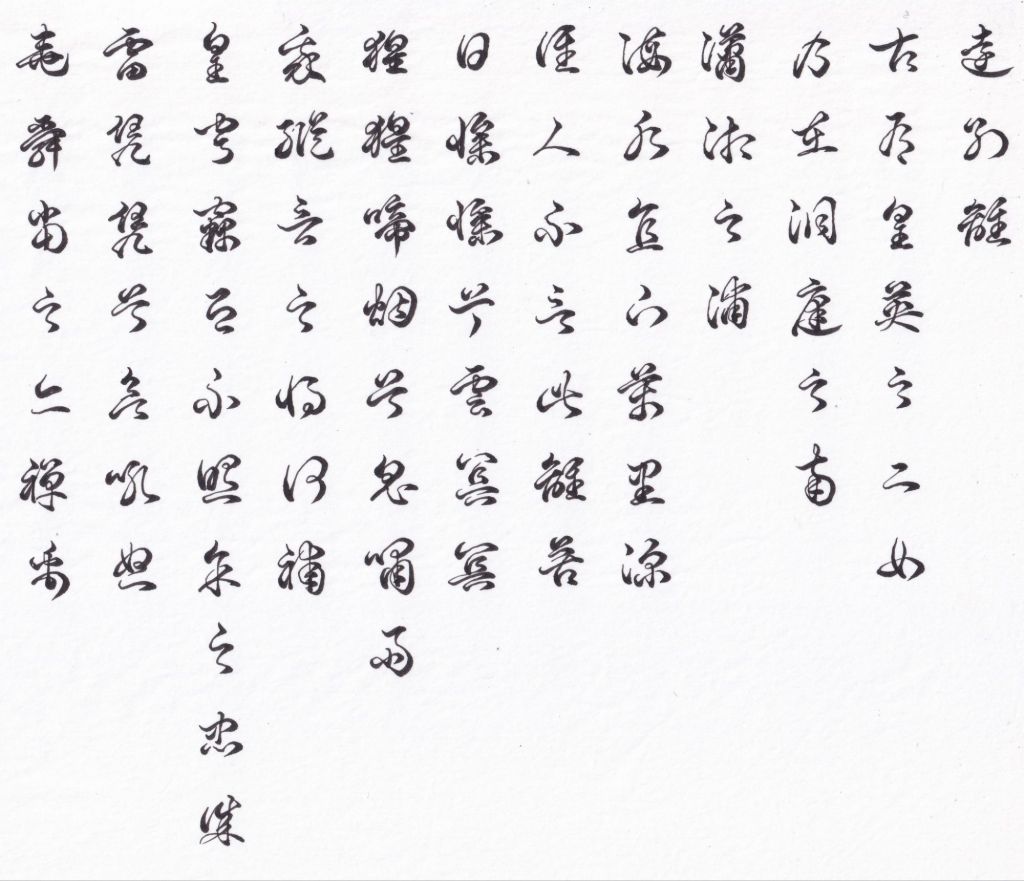 遠別離
古有皇英之二女
乃在洞庭之南
瀟湘之浦
海水直下萬里深
誰人不言此離苦
日慘慘兮雲冥冥
猩猩啼烟兮鬼嘯雨
我縱言之將何補
皇穹竊恐不照余之忠誠
雷憑憑兮欲吼怒
堯舜當之亦禪禹